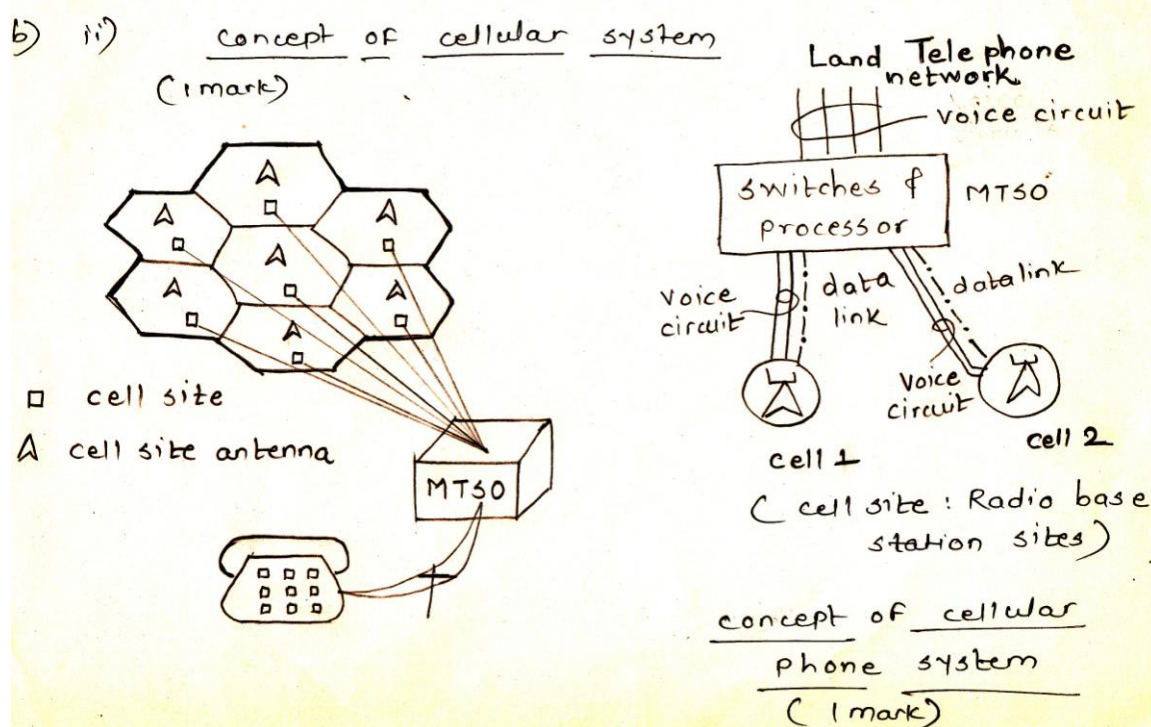 b) ii) concept of cellular system
(1 mark)
□ cell site
cell site antenna
MTSO
Land Telephone
network
voice circuit
switches &
processor
MTSO
voice
circuit
data
link
datalink
voice
circuit
cell 1
cell 2
( cell site : Radio base
station sites)
concept of cellular
phone system
( 1 mark)